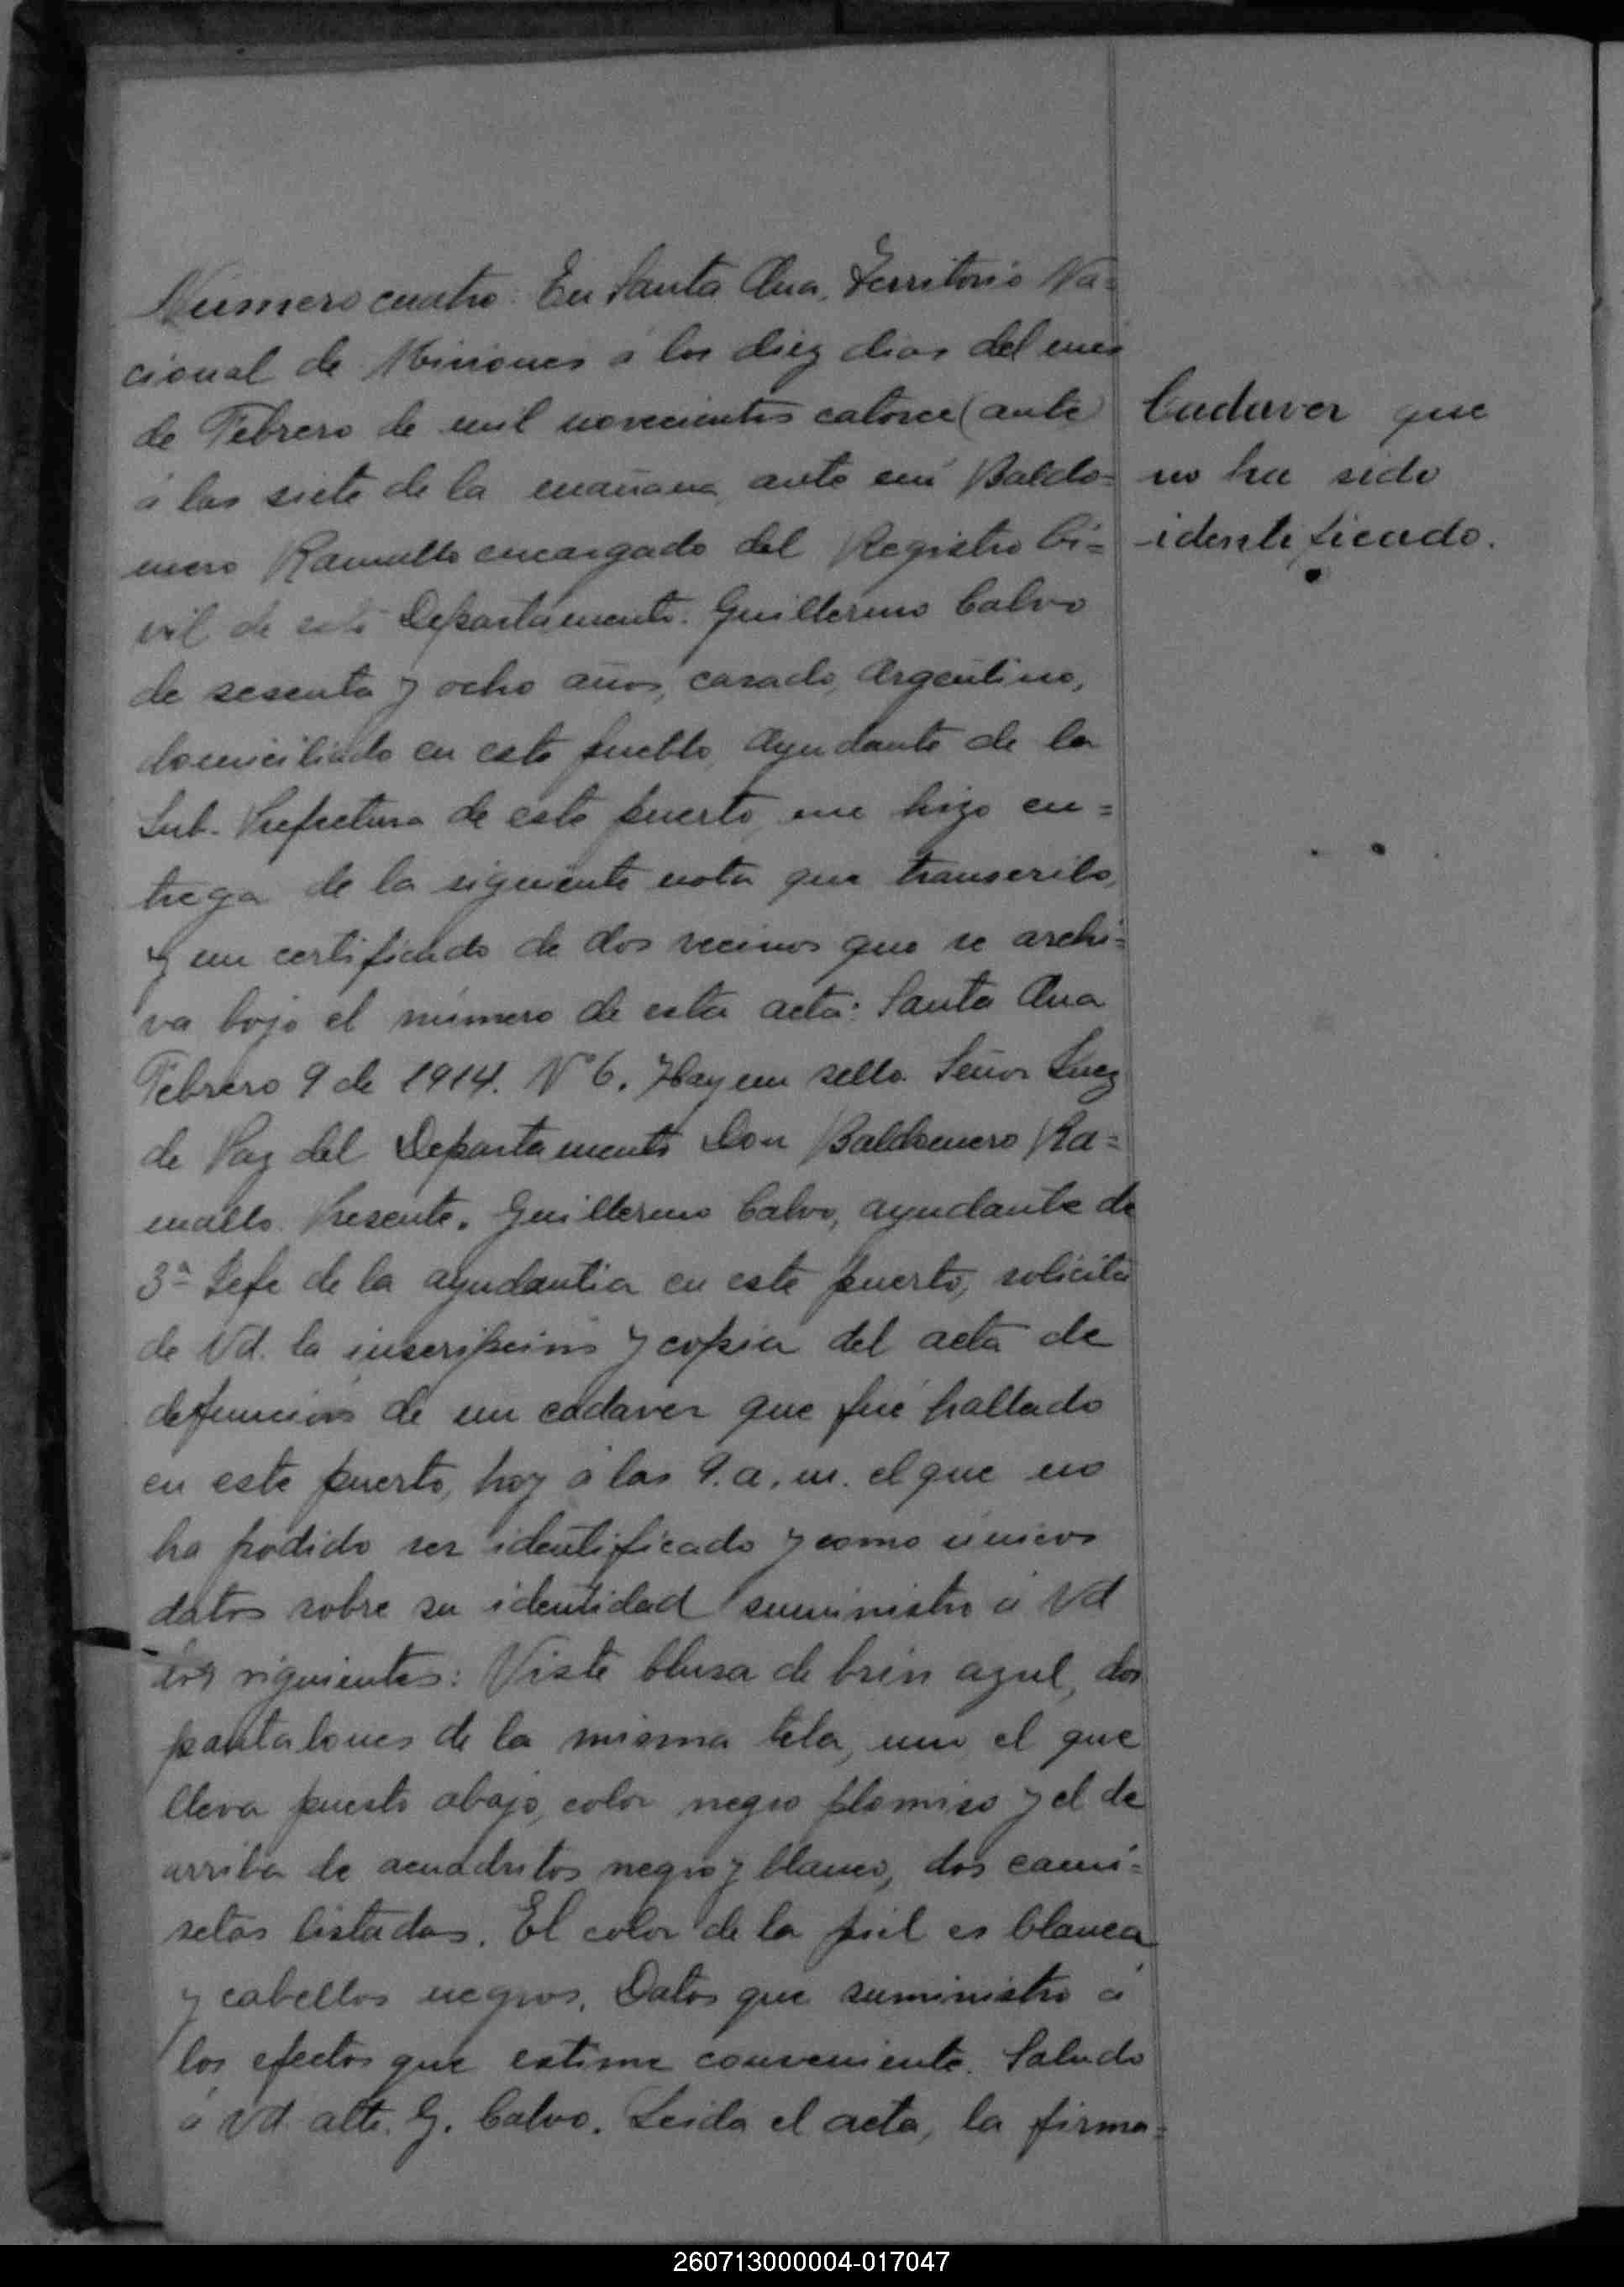 Número cuatro. En Santa Ana, Territorio Na=
cional de Misiones á los diez dias del mes
de Febrero de mil novecientos catorce (ante)
á las siete de la mañana, ante mi Baldo=
mero Ramallo encargado del Registro Ci=
vil de este Departamento. Guillermo Calvo
de sesenta y ocho años, casado, Argentino,
domiciliado en este pueblo, Ayudante de la
Sub-Prefectura de este puerto, me hizo en=
trega de la siguiente nota que transcribo,
y un certificado de dos vecinos que se archi=
va bajo el número de esta acta: Santa Ana
Febrero 9 de 1914. Nº 6. Hay un sello. Señor Juez
de Paz del Departamento Don Baldomero Ra=
mallo. Presente. Guillermo Calvo, ayudante de
3ª Jefe de la ayudantia en este puerto, solicita
de Vd. la inscripción y copia del acta de
defunción de un cadaver que fué hallado
en este puerto, hoy á las 9. a. m. el que no
ha podido ser identificado y como únicos
datos sobre su identidad suministro á Vd
los siguientes: Viste blusa de brin azul, dos
pantalones de la misma tela, uno el que
lleva puesto abajo, color negro plomiso y el de
arriba de acuadritos negro y blanco, dos cami=
setas listadas. El color de la piel es blanca
y cabellos negros. Datos que suministro á
los efectos que estime conveniente. Saludo
á Vd. atte. G. Calvo. Leida el acta, la firma=
Cadaver que
no ha sido
identificado.
260713000004-017047